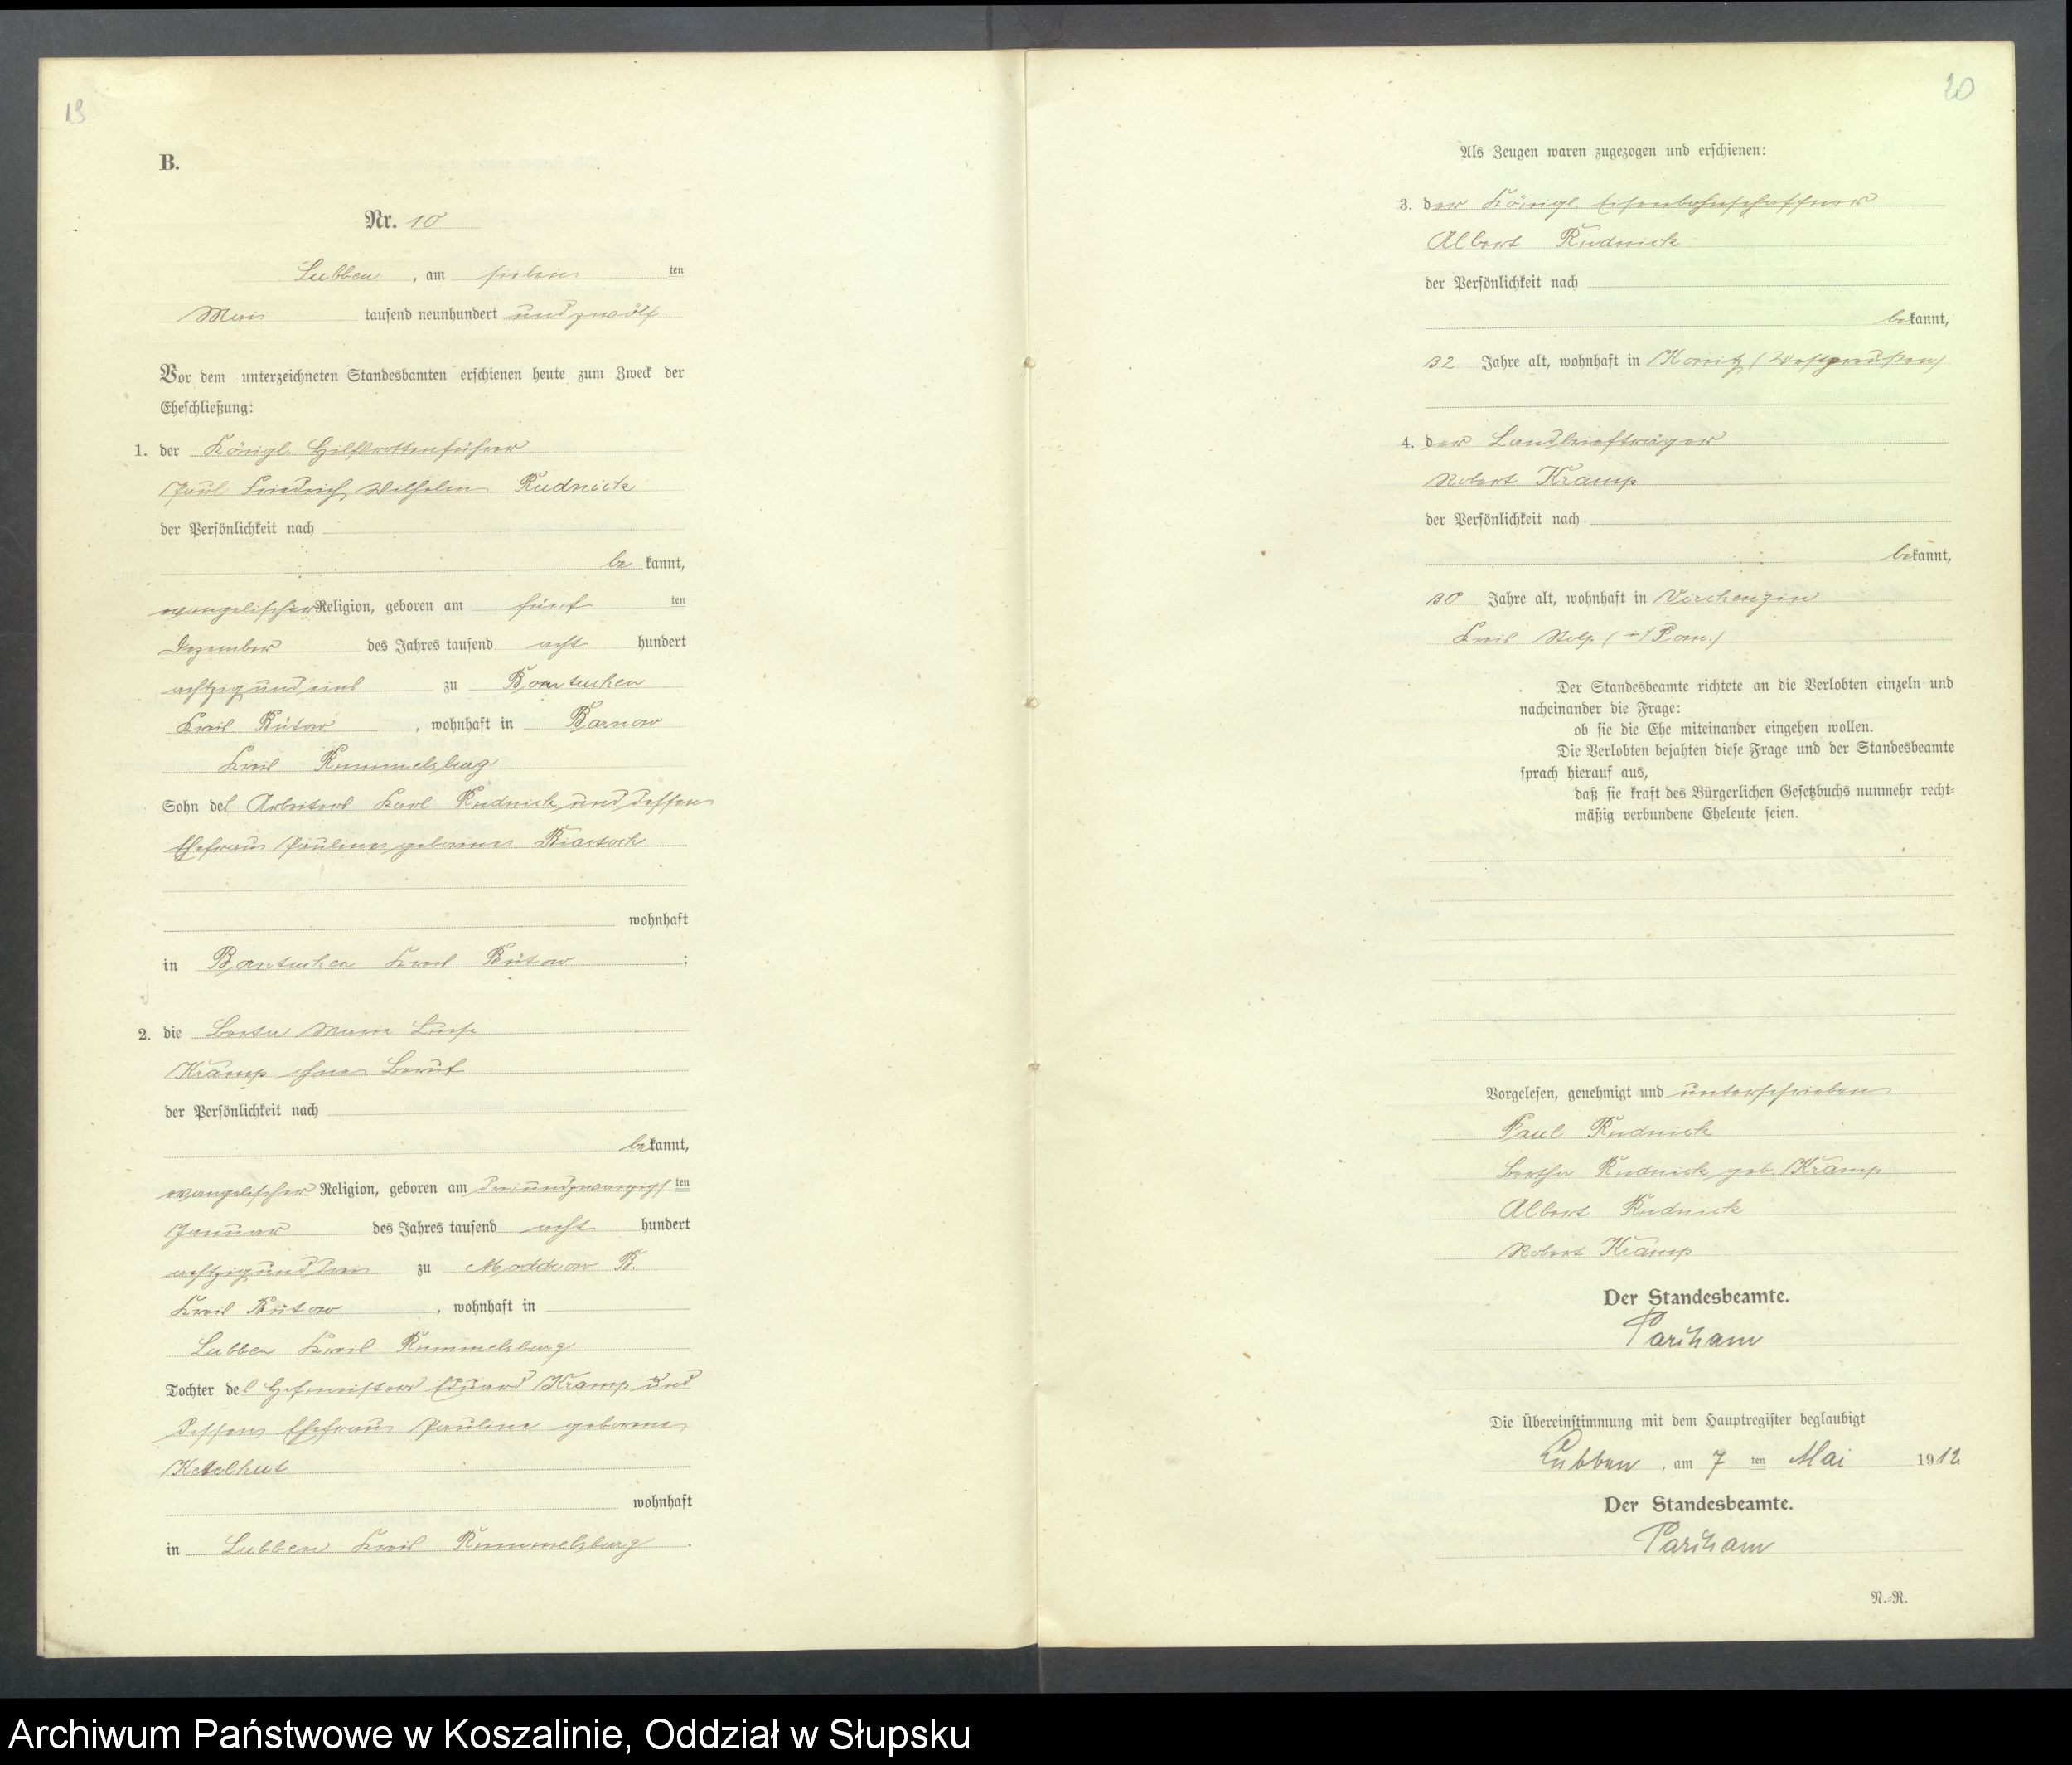 19
B.
Nr. 10
Lubben, am sieben ten
Mai tausend neunhundert und zwölf
Vor dem unterzeichneten Standesbamten erschienen heute zum Zweck der
Eheschließung:
1. der Königl. Hilfsrottenführer
Paul Friedrich Wilhelm Rudnick
der Persönlichkeit nach
be kannt,
evangelischer Religion, geboren am fünf ten
Dezember des Jahres tausend acht hundert
achtzig und eins zu Borntuchen
Kreis Bütow, wohnhaft in Barnow
Kreis Rummelsburg
Sohn des Arbeiters Karl Rudnick und dessen
Ehefrau Pauline geborene Biastock
wohnhaft
in Borntuchen Kreis Bütow ;
2. die Berta Marie Luise
Kramp ohne Beruf
der Persönlichkeit nach
bekannt,
evangelischer Religion, geboren am dreiundzwanzigsten
Januar des Jahres tausend acht hundert
achtzig und drei zu Moddrow B.
Kreis Bütow, wohnhaft in
Lubben Kreis Rummelsburg
Tochter des Hofmeisters Eduard Kramp und
dessen Ehefrau Pauline geborene
Ketelhut
wohnhaft
in Lubben Kreis Rummelsburg.
20
Als Zeugen waren zugezogen und erschienen:
3. der Königl. Eisenbahnschaffner
Albert Rudnick
der Persönlichkeit nach
bekannt,
32 Jahre alt, wohnhaft in Konitz (Westpreußen)
4. der Landbriefträger
Robert Kramp
der Persönlichkeit nach
bekannt,
30 Jahre alt, wohnhaft in Virchenzin
Kreis Stolp (Pom.)
Der Standesbeamte richtete an die Verlobten einzeln und
nacheinander die Frage:
ob sie die Ehe miteinander eingehen wollen.
Die Verlobten bejahten diese Frage und der Standesbeamte
sprach hierauf aus,
daß sie kraft des Bürgerlichen Gesetzbuchs nunmehr recht-
mäßig verbundene Eheleute seien.
Vorgelesen, genehmigt und unterschrieben
Paul Rudnick
Bertha Rudnick geb. Kramp
Albert Rudnick
Robert Kramp
Der Standesbeamte.
Die Übereinstimmung mit dem Hauptregister beglaubigt
Lubben, am 7 ten Mai 1912
Der Standesbeamte.
N.-R.
Archiwum Państwowe w Koszalinie, Oddział w Słupsku